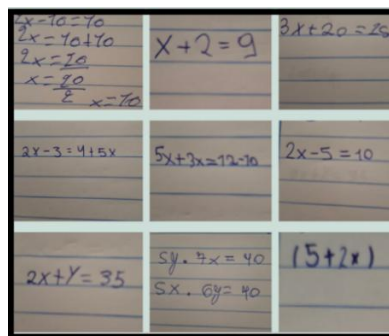 2x-10=10
2x=10+10
2x=20
x=20
2 x=10
x+2=9
3x+20=25
2x-3=4+5x
5x+3x=12-10
2x-5=10
2x+y=35
5y.7x=40
5x.6y=40
(5+2x)